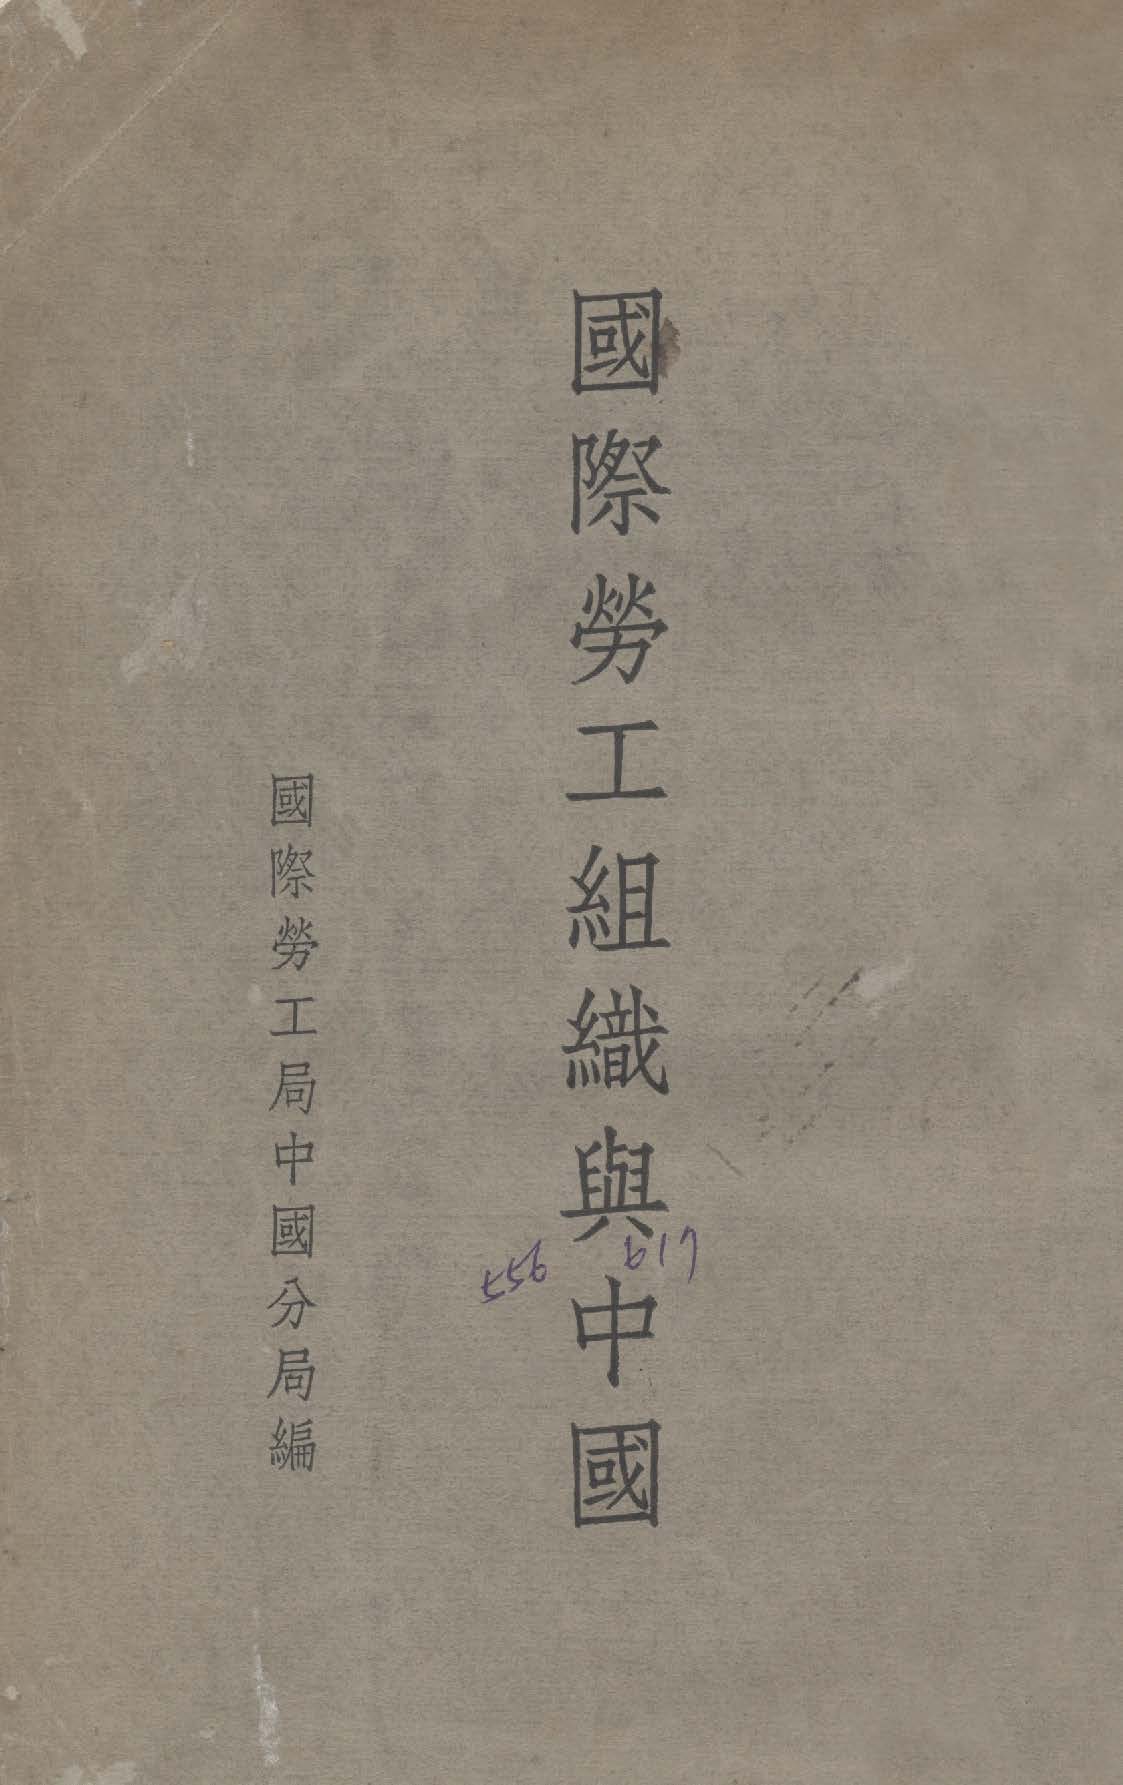 國際勞工組織與中國
617
556
國際勞工局中國分局編